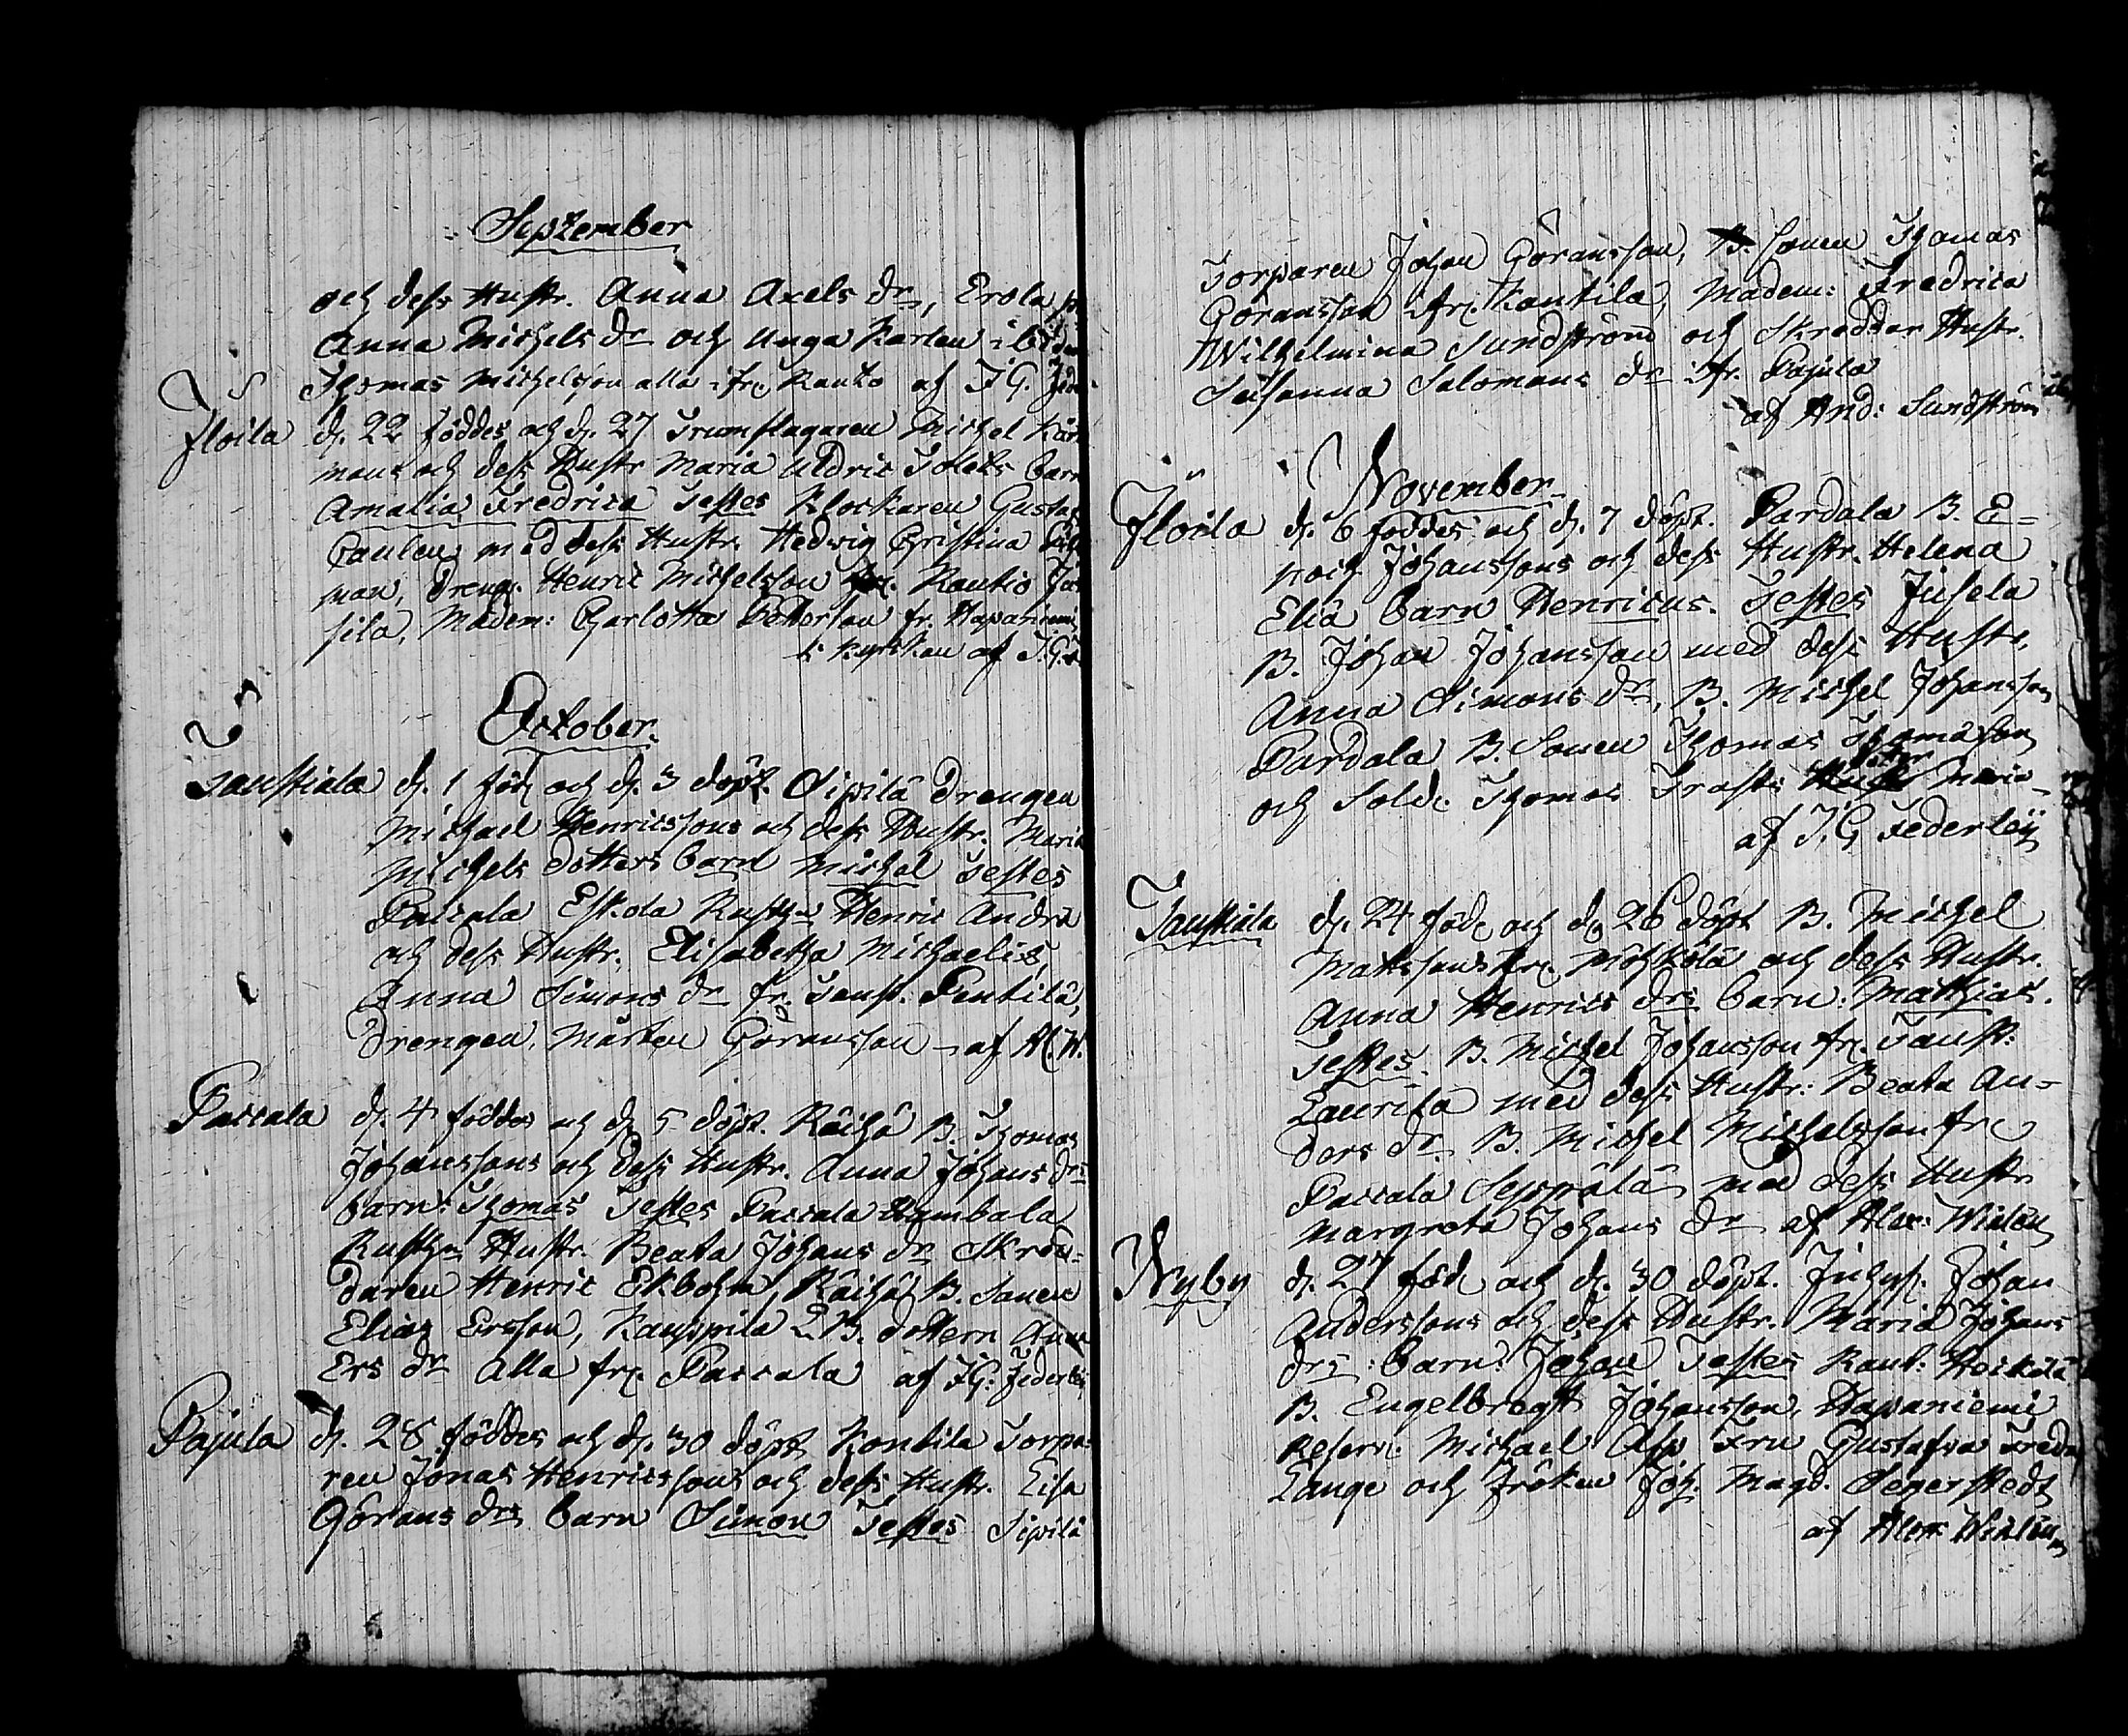 September
och dess Hustr. Anna Axels dr, Erola
Anna Michels dr och unga Karlen ibid
Thomas Michelsson alla ifr. Kauko af J G. Fede
Jloila d. 22 föddes och d. 27 Trumslagaren Michel
mans och dess Hustr Maria Uldric barn
Amalia Fredrica Testes Klockaren Gustaf
Paulen med dess Hustr. Hedvig Christina
man, Dreng. Henric Michelsson fr. Kautio
sila, Madem: Charlotta Petterson fr. Hapaniemi
i Kyrkan af J.G.
October.
Tauskiala d. 1 född och d. 3 döpt. Sipilä Drengen
Michael Henricssons och dess Hustr. Maria
Michels dotters barn Michel Testes
Paccala Eskola Rusth. Henric Andr
och dess Hustr. Elisabetha Michaelis,
Anna Simons dr fr. Tausk. Pentilä,
Drengen, Mårten Göransson af Al. W.
Paccala d. 4 föddes och d. 5 döpt. Räihä B. Thomas
Johanssons och dess Hustr. Anna Johans drs
barn: Thomas Testes Paccala Rambala
Rusth. Hustr. Beata Johans dr Skröd=
daren Henric Ekbohm, Räihä B. Sonen
Elias Ersson, Kauppila B. dottern Anna
Ers dr alla fr. Paccala af J G: Federley
Pajula d. 28 föddes och d. 30 döpt Kontila Torpa=
ren Jonas Henricssons och dess Hustr. Lisa
Görans drs barn Simon Testes Sipilä
Torparen Johan Göransson, B. Sonen Thomas
Göransson ifr. Kontila, Madem: Fredrica
Wilhelmina Sundström och Skreddar Hustr.
Susanna Salomons dr ifr. Pajula
af And: Sundström
November
Jloila d. 6 föddes och d. 7 döpt. Pardala B. E=
noch Johanssons och dess Hustr. Helena
Eliä barn Henricus. Testes Jusela
B. Johan Johansson med dess Hustr.
Anna Simons dr, B. Michel Johansson
Pardala B. Sonen Thomas Thomasson
och Sold. Thomas Trasts Maria
af J.G Federley
Tauskiala d. 24 född och d. 26 döpt B. Michel
Mattssons fr. Möhkölä och dess Hustr.
Anna Henrics drs barn: Matthias.
Testes. B. Michel Johansson fr. Tausk:
Laurila med dess Hustr: Beata An=
ders dr. B. Michel Michelsson fr.
Paccala Seppälä med dess Hustr
Margreta Johans dr af Alex: Wixlén
Nyby d. 27 född och d. 30 döpt. Inhys. Johan
Anderssons och dess Hustr. Maria Johans
drs: barn: Johan Testes Kaut: Hockola
B. Engelbrecht Johansson, Hapaniemi
Reserv. Michael Asp Fru Gustafva Fredr
Lange och Fröken Joh. Magd. Segerstedt
af Alex Wixlén